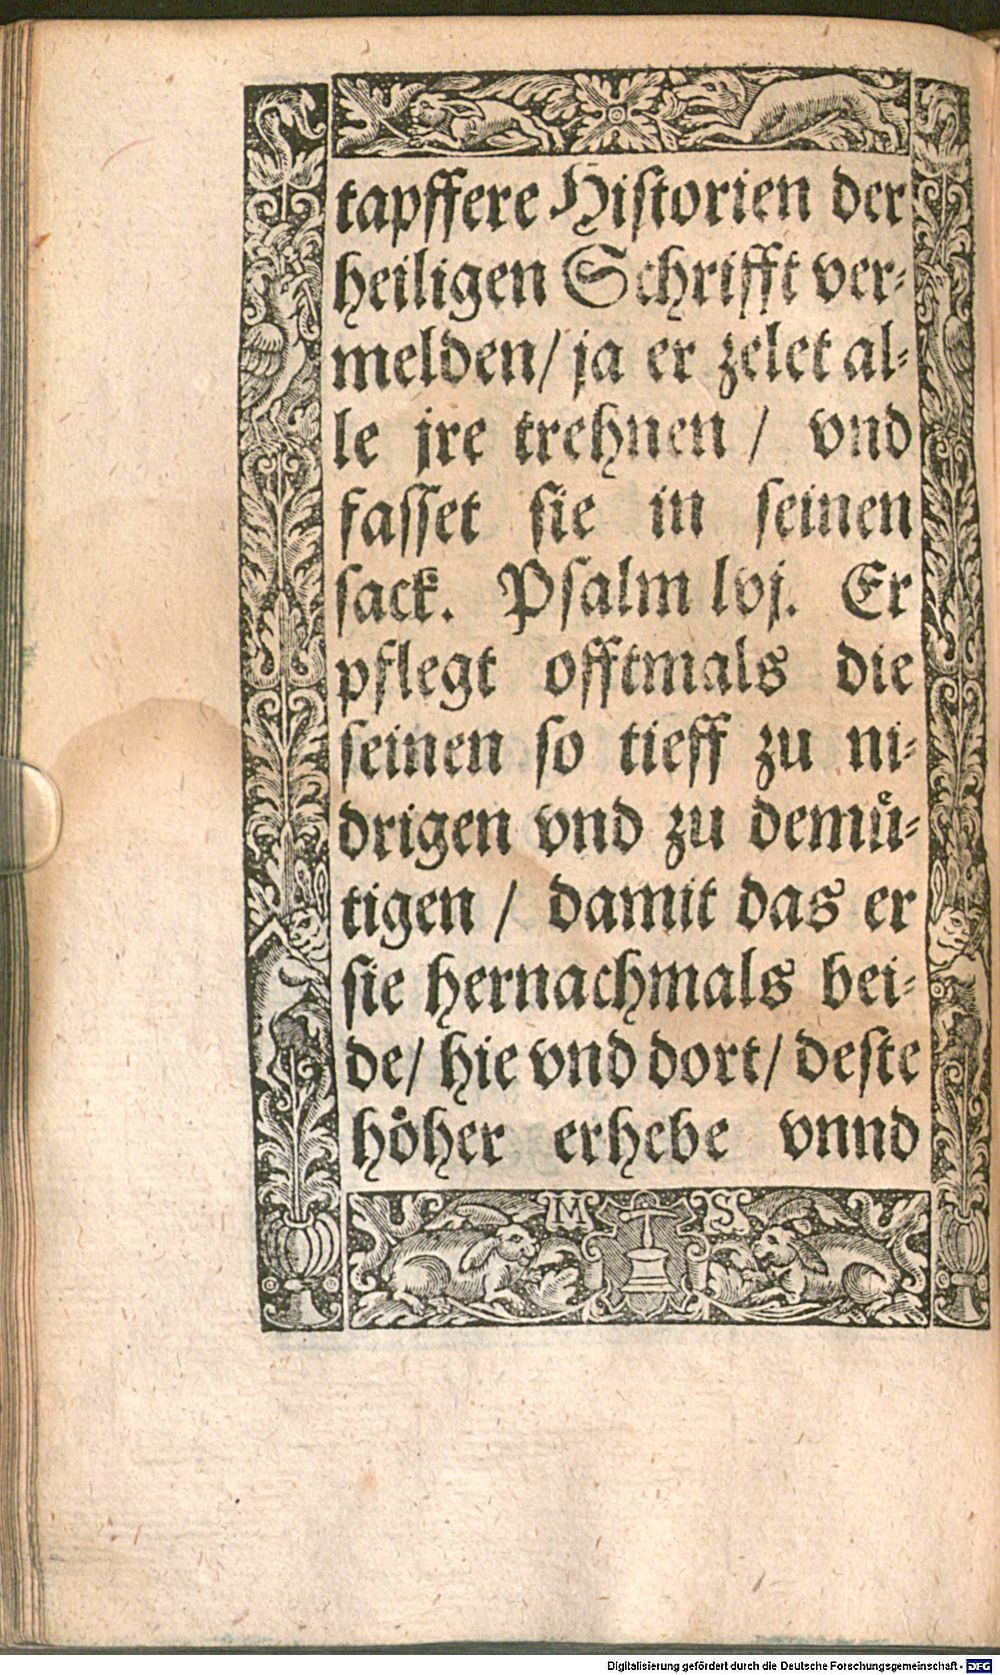 tapffere Historien der
heiligen Schrifft ver-
melden/ ja er zelet al-
le jre trehnen / vnd
fasset sie in seinen
sack. Psalm lvj. Er
pflegt offtmals die
seinen so tieff zu ni-
drigen vnd zu demuͤ-
tigen / damit das er
sie hernachmals bei-
de/ hie vnd dort/ deste
hoͤher erhebe vnnd
M S
Digitalisierung gefördert durch die Deutsche Forschungsgemeinschaft - DFG